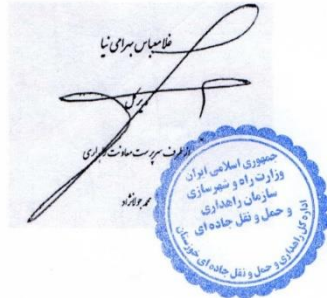 غلامعباس بهرامی نیا
مدیرکل
از طرف سرپرست معاونت راهداری
محمد جولانژاد
جمهوری اسلامی ایران
وزارت راه و شهرسازی
سازمان راهداری
و حمل و نقل جاده ای
اداره کل راهداری و حمل و نقل جاده ای خوزستان